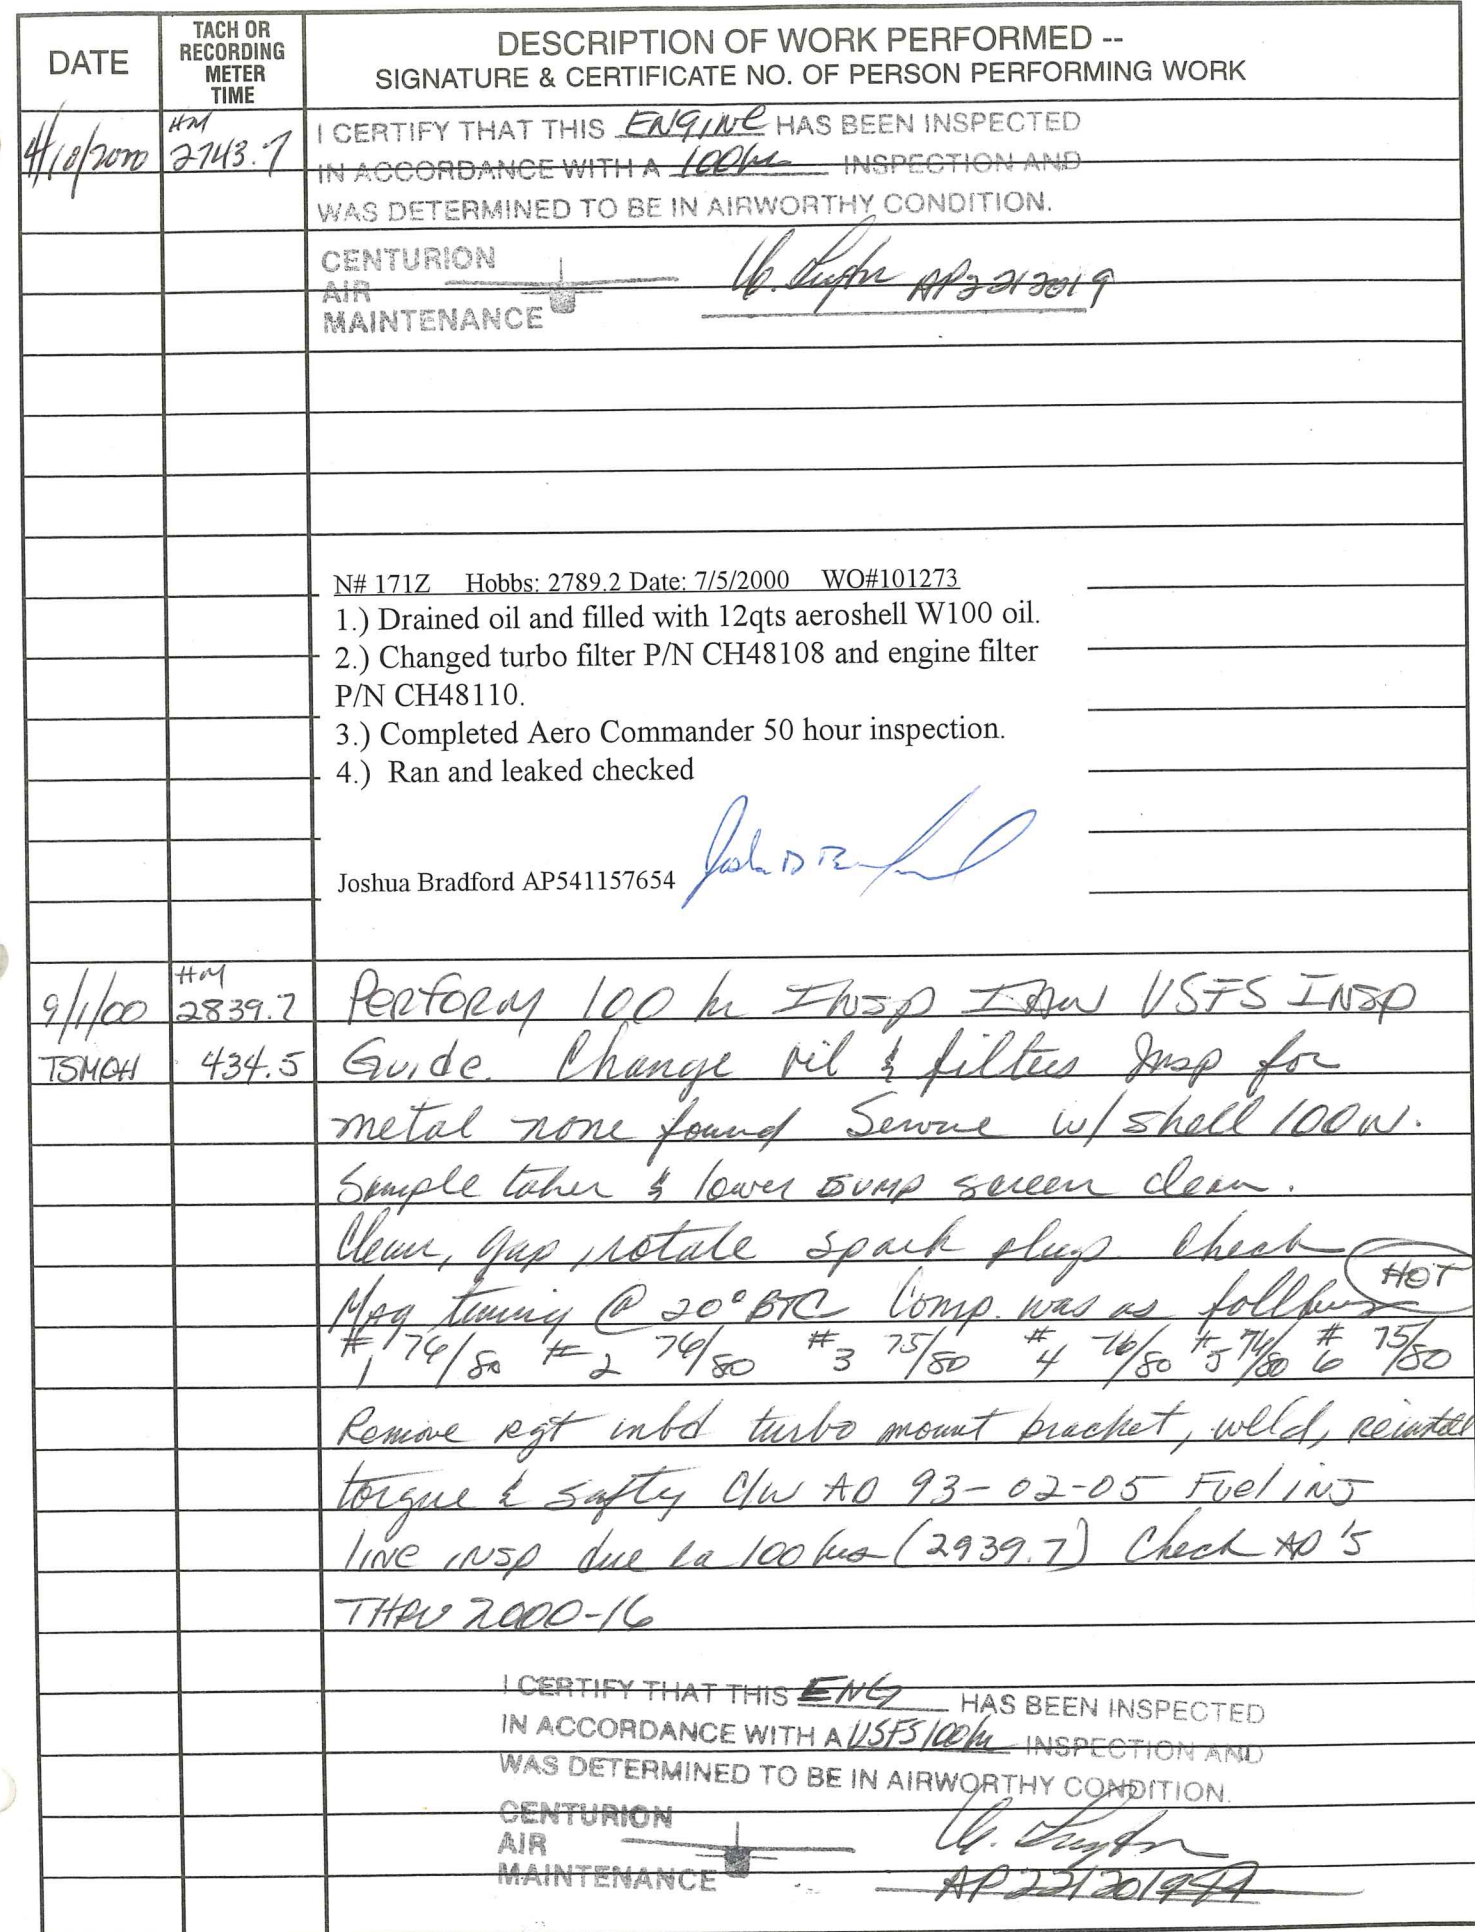 DATE
TACH OR
RECORDING
METER
TIME
DESCRIPTION OF WORK PERFORMED --
SIGNATURE & CERTIFICATE NO. OF PERSON PERFORMING WORK
4/10/2000
HM
2743.7
I CERTIFY THAT THIS ENGINE HAS BEEN INSPECTED
IN ACCORDANCE WITH A 100hr INSPECTION AND
WAS DETERMINED TO BE IN AIRWORTHY CONDITION.
CENTURION
AIR
MAINTENANCE
AP2212019
N# 171Z Hobbs: 2789.2 Date: 7/5/2000 WO#101273
1.) Drained oil and filled with 12qts aeroshell W100 oil.
2.) Changed turbo filter P/N CH48108 and engine filter
P/N CH48110.
3.) Completed Aero Commander 50 hour inspection.
4.) Ran and leaked checked
Joshua Bradford AP541157654
9/1/00 HM 2839.7 PERFORM 100 hr Insp IAW USFS INSP
TSMOH 434.5 Guide. Change oil & filters Insp for
metal none found Service w/ shell 100W.
Sample taken & lower sump screen clean.
Clean, gap, rotate spark plugs. Check
Mag timing @ 20° BTC Comp. was as follows HOT
#1 76/80 #2 76/80 #3 75/80 #4 76/80 #5 76/80 #6 75/80
Remove rgt inbd turbo mount bracket, weld, reinstall
torque & safty C/W AD 93-02-05 Fuel inj
line insp due ea 100 hrs (2939.7) Check AD's
THRU 2000-16
I CERTIFY THAT THIS ENG HAS BEEN INSPECTED
IN ACCORDANCE WITH A USFS 100hr INSPECTION AND
WAS DETERMINED TO BE IN AIRWORTHY CONDITION.
CENTURION
AIR
MAINTENANCE